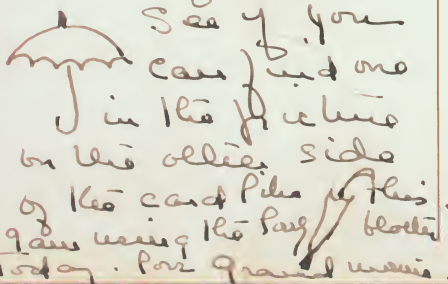 See if you
can find one
in the picture
on the other side
of the card like this.
I am using the blotter
Today. Poor Grand